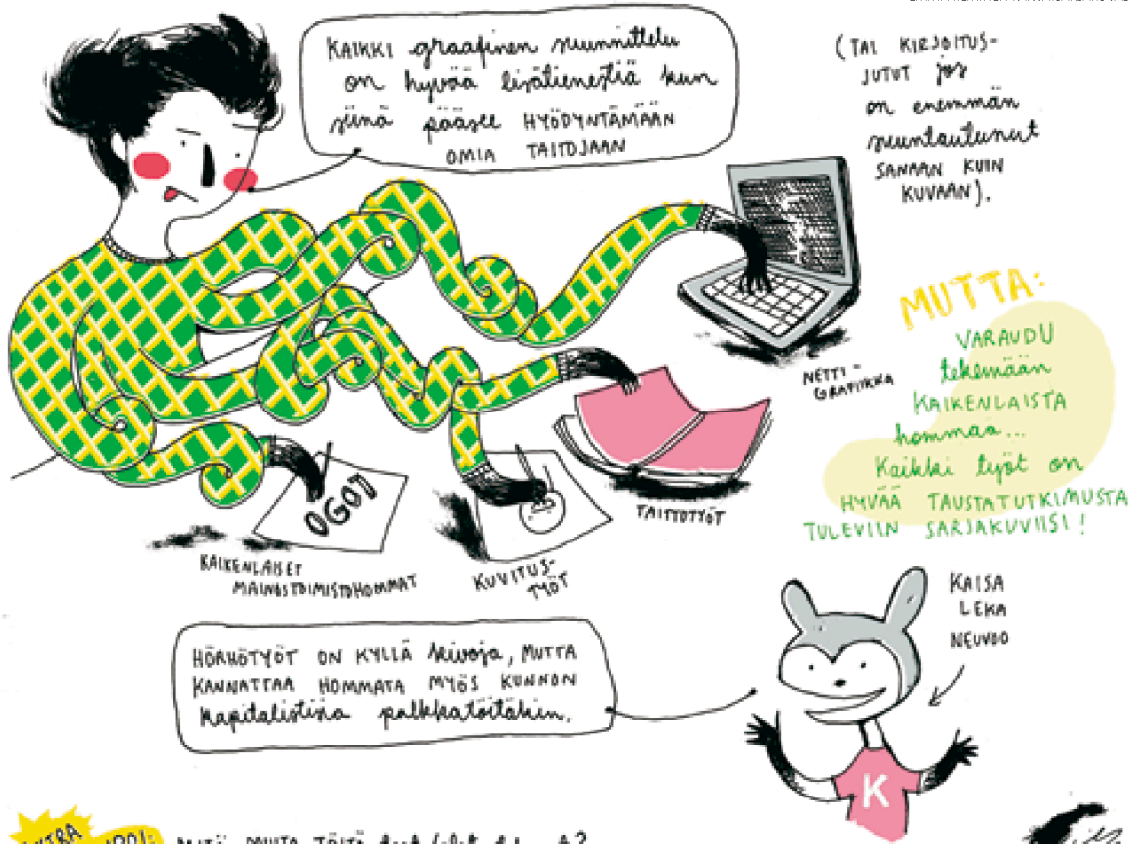 KAIKKI graafinen suunnittelu
on hyvää lisätienestiä kun
siinä pääsee HYÖDYNTÄMÄÄN
OMIA TAITOJAAN
(TAI KIRJOITUS-
JUTUT jos
on enemmän
suuntautunut
SANAAN KUIN
KUVAAN).
MUTTA:
VARAUDU
tekemään
KAIKENLAISTA
hommaa...
Kaikki työt on
HYVÄÄ TAUSTATUTKIMUSTA
TULEVIIN SARJAKUVIISI!
NETTI-
GRAFIIKKA
TAITTOTYÖT
KUVITUS-
TYÖT
OGOJ
KAIKENLAISET
MAINOSTOIMISTOHOMMAT
HÖRHÖTYÖT ON KYLLÄ kivoja, MUTTA
KANNATTAA HOMMATA MYÖS KUNNON
kapitalistisia palkkatöitäkin.
KAISA
LEKA
NEUVOO
K
MUITA TÖITÄ